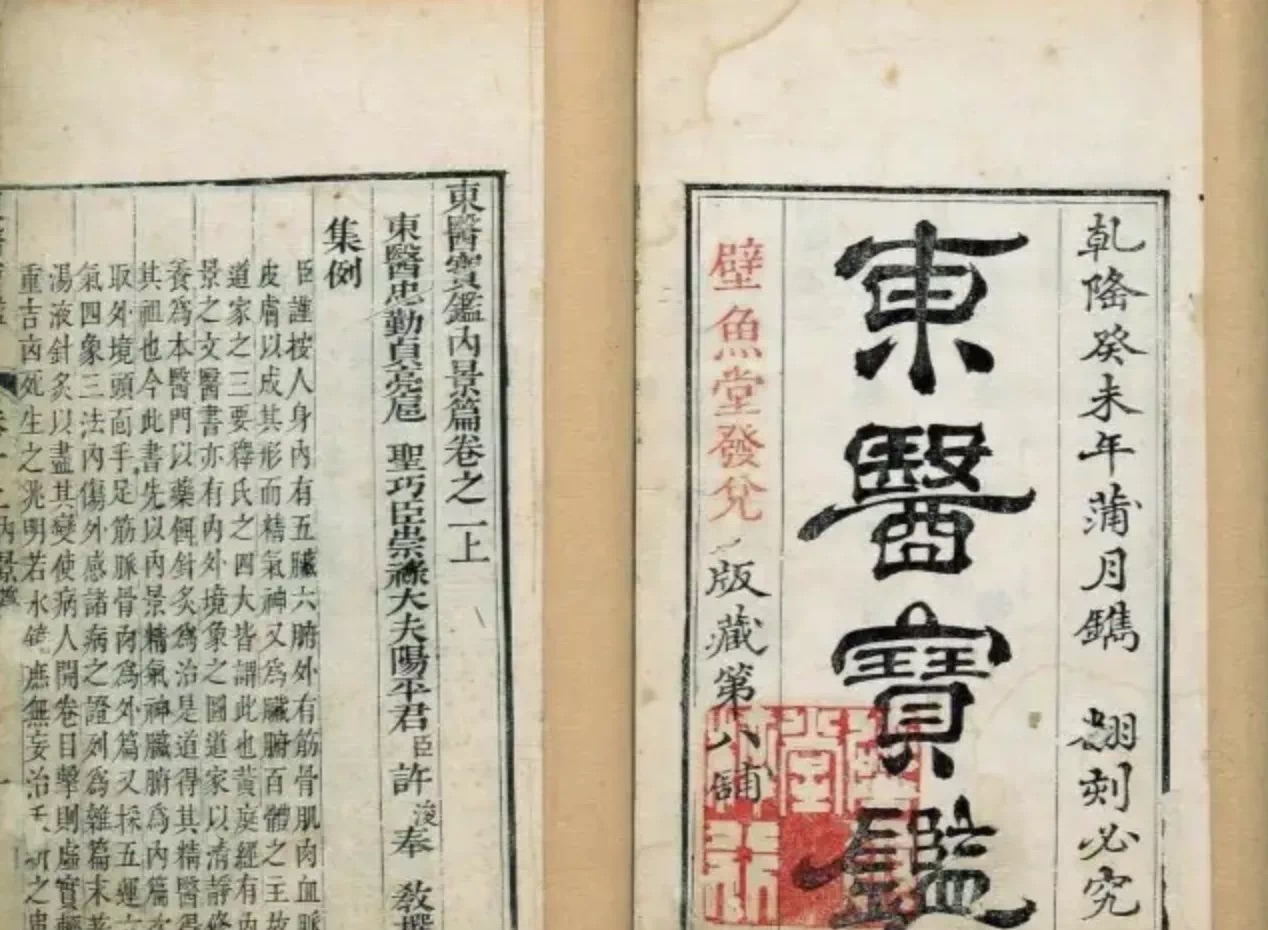 乾隆癸未年蒲月鐫 翻刻必究
東醫寶鑑
壁魚堂發兌 版藏第八鋪
東醫寶鑑內景篇卷之一上
東醫忠勤貞亮扈 聖巧臣崇祿大夫陽平君臣許浚奉 敎撰
集例
臣謹按人身內有五臟六腑外有筋骨肌肉血脈
皮膚以成其形而精氣神又爲臟腑百體之主故
道家之三要釋氏之四大皆謂此也黃庭經有內
景之文醫書亦有內外境象之圖道家以清靜修
養爲本醫門以藥餌針灸爲治是道得其精醫得
其祖也今此書先以內景精氣神臟腑爲內篇次
取外境頭面手足筋脈骨肉爲外篇又採五運六
氣四象三法內傷外感諸病之證列爲雜篇末著
湯液針灸以盡其變使病人開卷目擊則虛實輕
重吉凶死生之兆明若水鏡庶無妄治夭折之患